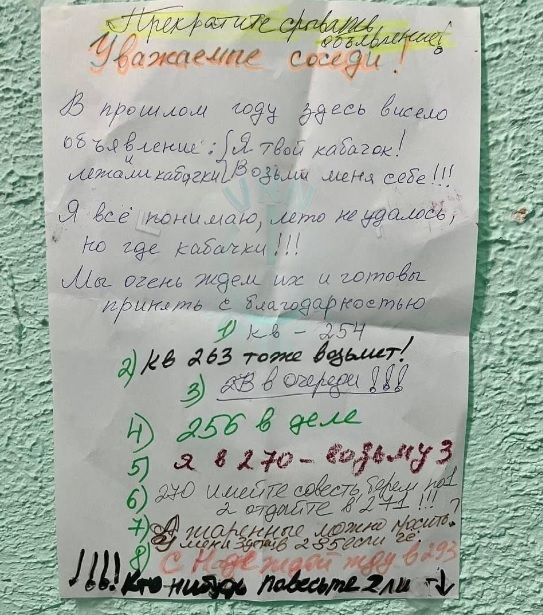 Прекратите срывать
объявление!
Уважаемые соседи!
В прошлом году здесь висело
объявление: { Я твой кабачок!
и лежали кабачки { Возьми меня себе!!!
Я всё понимаю, лето не удалось,
но где кабачки!!!
Мы очень ждем их и готовы
принять с благодарностью
1) кв - 254
2) кв 263 тоже возьмет!
3) 2В в очереди!!!
4) 256 в деле
5) я в 270 - возьму 3
6) 270 имейте совесть, берем по 1
2 отдайте в 271!!!
7) А жаренные можно просто?
меня в 255 если чё.
8) С Надеждой жду в 293
!!!! Кто нибудь повесьте 2 ли ↓